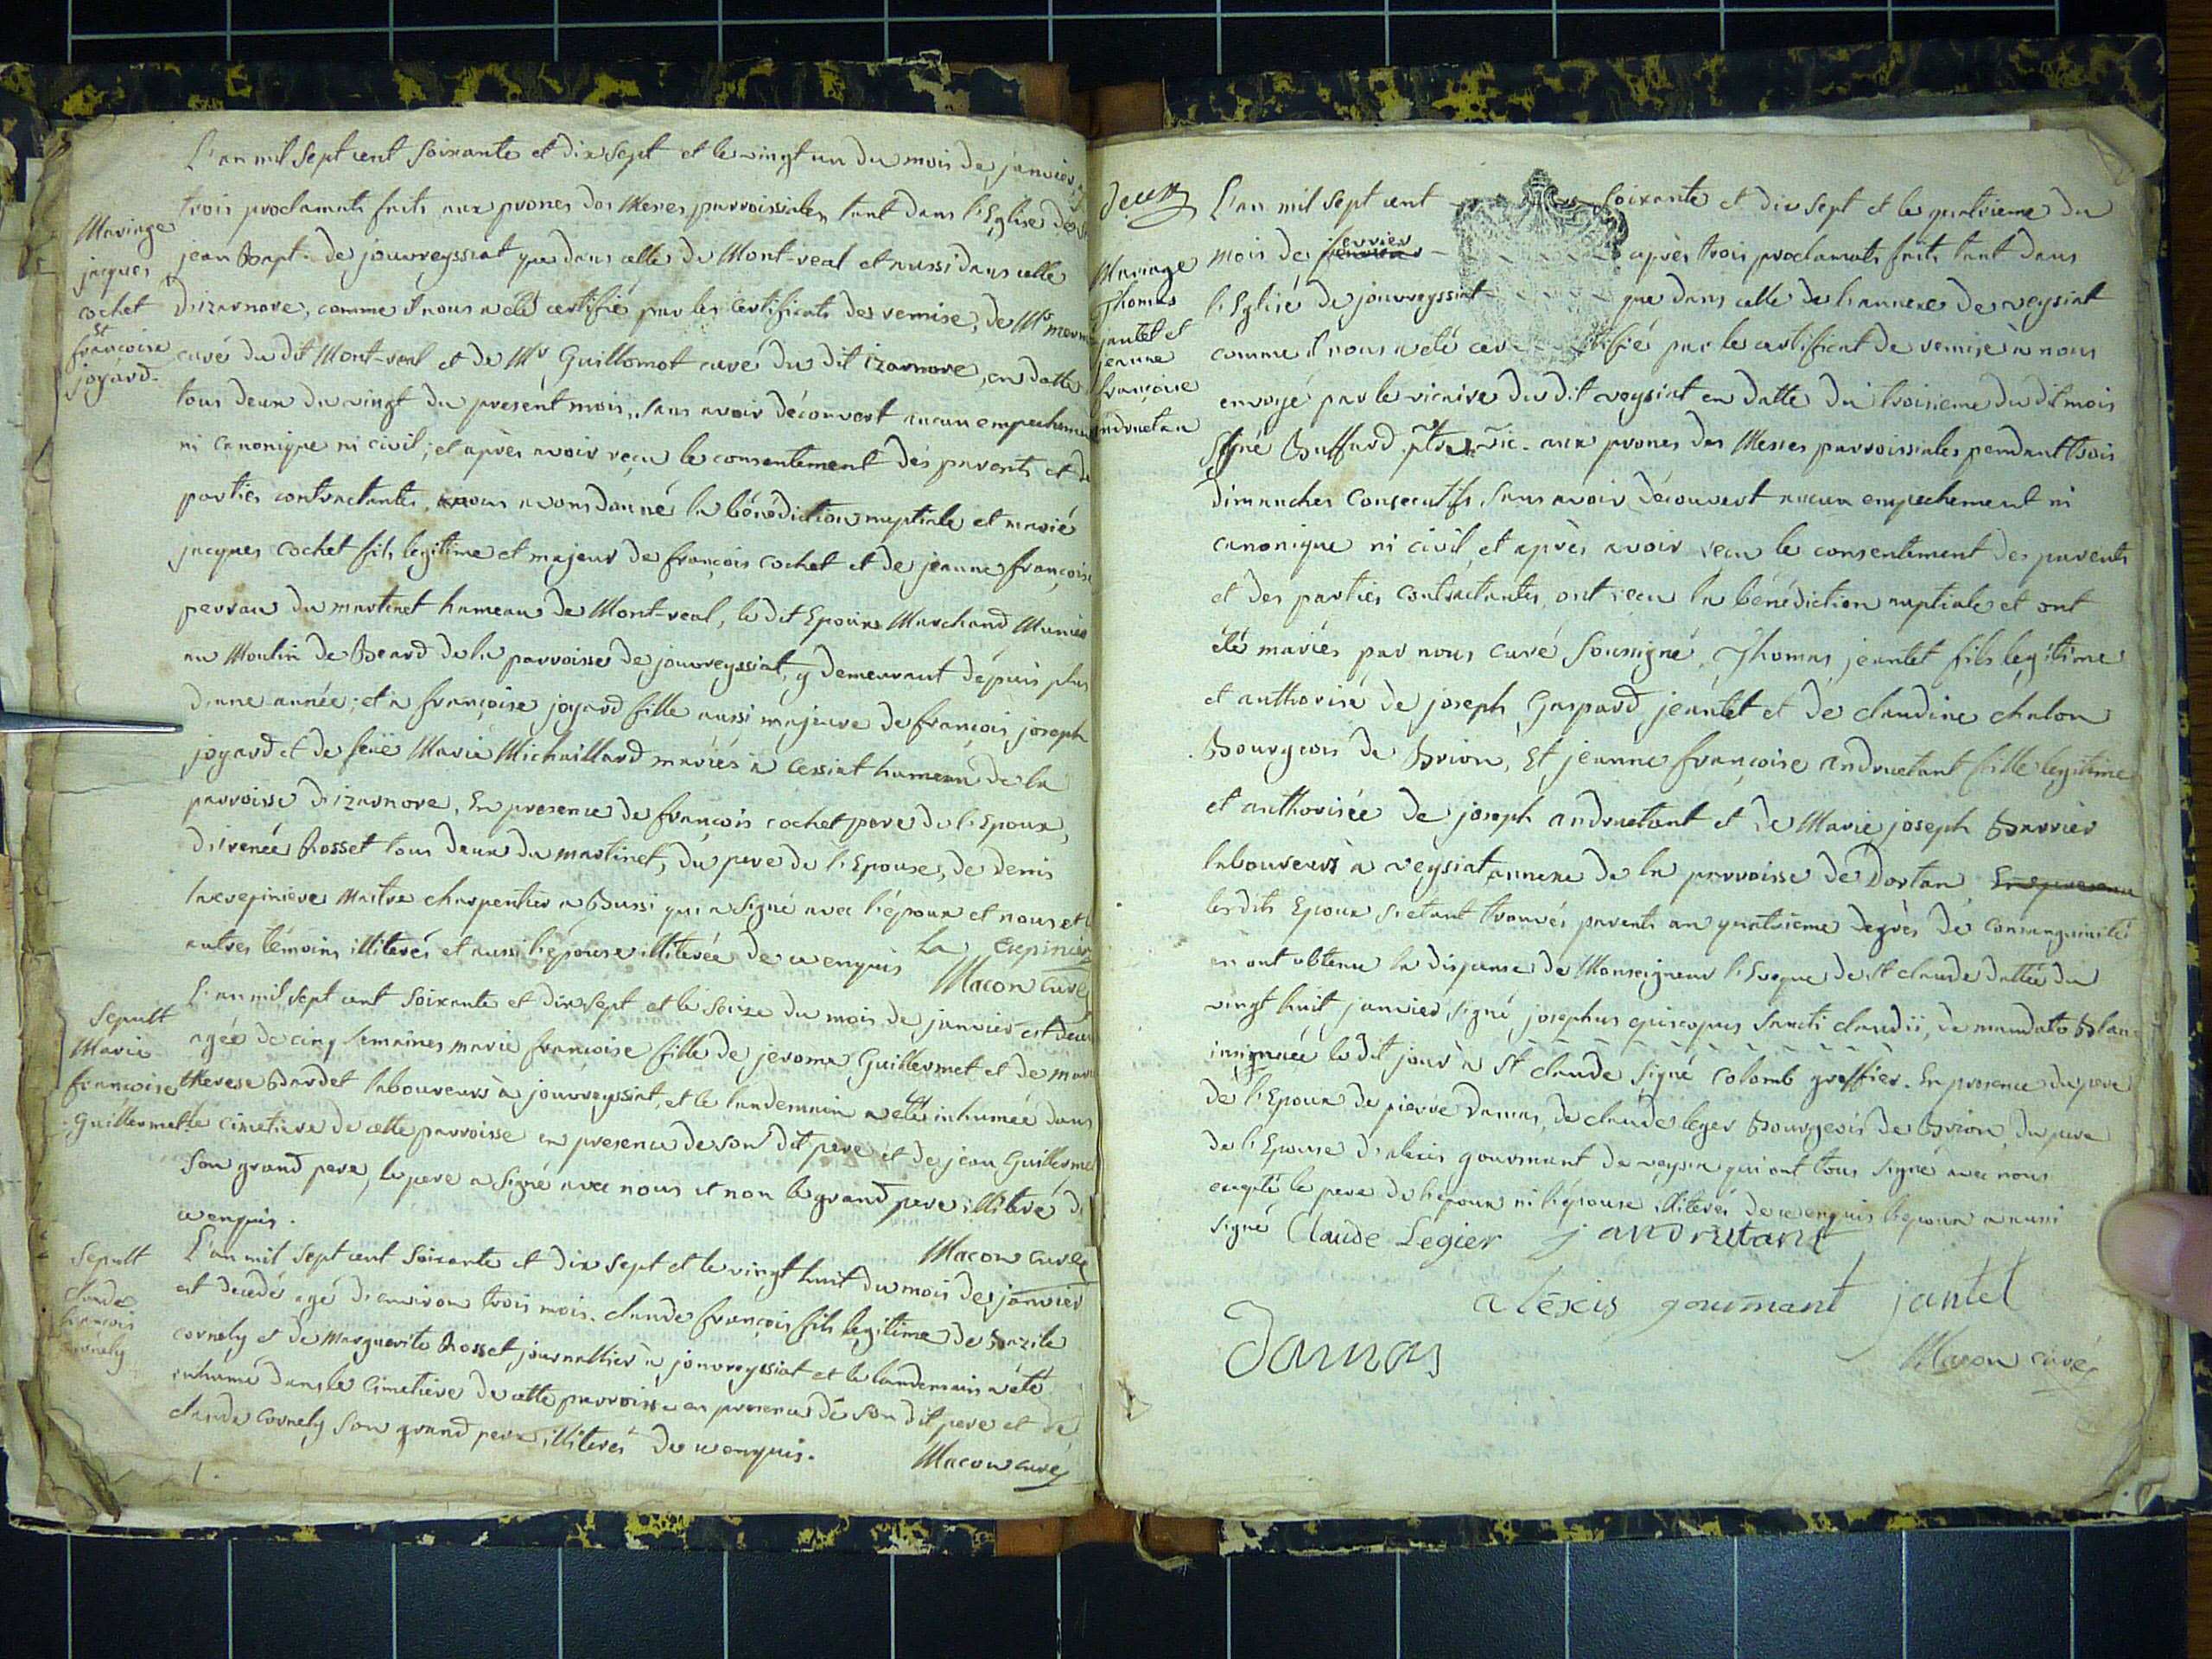 L'an mil sept cent soixante et dix sept et le vingt un du mois de janvier,
trois proclamats faits aux prones des Messes parroissiales tant dans l'Eglise de
Mariage
jacques
cochet
et
francoise
joyard.
jean Bapt. de jouvreyssiat que dans celle de Mont-real et aussi dans celle
d'izarnore, comme il nous a été certifié par les certificats de remise, de Mr
curé du dit Mont-real et de Mr Guillomot curé du dit izarnore, en datte
tous deux du vingt du present mois, sans avoir découvert aucun
ni canonique ni civil; et après avoir reçu le consentement des parents et
parties contractantes, nous avons donné la bénédiction nuptiale et marié
jacques cochet fils legitime et majeur de françois cochet et de jeanne françoise
perrau du martinet hameau de Mont-real, le dit Epoux Marchand Munier
au Moulin de Beard de la parroisse de jouvreyssiat, y demeurant dépuis plus
d'une année; et a françoise joyard fille aussi majeure de françois joseph
joyard et de feüe Marie Michaillard mariés à cessiat hameau de la
parroisse d'izarnore. En presence de françois cochet pere de l'Epoux,
d'irenée Rosset tous deux du martinet, du pere de l'Epouse, de denis
lacrepiniere maitre charpentier a Bussi qui a signé avec l'époux et nous et
autres témoins illiterés et aussi l'épouse illiterée de ce enquis La crepinier
Macon curé
Sepult
Marie
francoise
Guillermet.
L'an mil sept cent soixante et dix sept et le seize du mois de janvier est
agée de cinq semaines marie françoise fille de jerome Guillermet et de
therese Bardet laboureurs à jouvreyssiat, et le landemain a été inhumée dans
le cimetiere de cette parroisse en presence de son dit pere et de jean
son grand pere, le pere a signé avec nous et non le grand pere illiteré de
ce enquis.
Macon curé
Sepult
claude
francois
cornely
L'an mil sept cent soixante et dix sept et le vingt huit du mois de janvier
est decedé agé d'environ trois mois. claude françois fils legitime de Bazile
cornely et de Marguerite Rosset journallier à jouvreyssiat et le landemain a été
inhumé dans le cimetiere de cette parroisse en presence de son dit pere et de
claude cornely son grand pere illiterés de ce enquis.
Macon curé
deux
Mariage
Thomas
jantet et
jeanne
françoise
andruetan
L'an mil sept cent soixante et dix sept et le quatrieme du
mois de fevrier après trois proclamats faits tant dans
l'Eglise de jouvreyssiat que dans celle de l'annexe de veysiat
comme il nous a été certifié par le certificat de remise à nous
envoyé par le vicaire du dit veysiat en datte du troisieme du dit mois
signé Buffard ptre vic. aux prones des Messes parroissiales pendant trois
dimanches consecutifs, sans avoir découvert aucun empechement ni
canonique ni civil, et après avoir reçu le consentement des parents
et des parties contractantes, ont reçu la bénédiction nuptiale et ont
été mariés par nous curé soussigné, Thomas jeantet fils legitime
et authorisé de joseph Gaspard jeantet et de claudine chalon
Bourgeois de Brion, Et jeanne françoise andruetant fille legitime
et authorisée de joseph andruetant et de Marie joseph Barrier
laboureurs a veysiat annexe de la parroisse de Dortan En presence
lesdits Epoux s'etant trouvés parents au quatrieme degrès de consanguinité
en ont obtenu la dispense de Monseigneur l'Eveque de st claude dattée du
vingt huit janvier, signé josephus episcopus sancti claudii, de mandato Blanc
insinuée le dit jour à st claude signé colomb greffier. En presence du pere
de l'Epoux de pierre Damas, de claude leger Bourgeois de Brion, du pere
de l'Epouse d'alexis gourmant de veysia qui ont tous signé avec nous
excepté le pere de l'epoux ni l'épouse illiterés de ce enquis l'epoux a aussi
signé Claude Legier j andrutant
alexis gourmant jantet
Damas
Macon curé